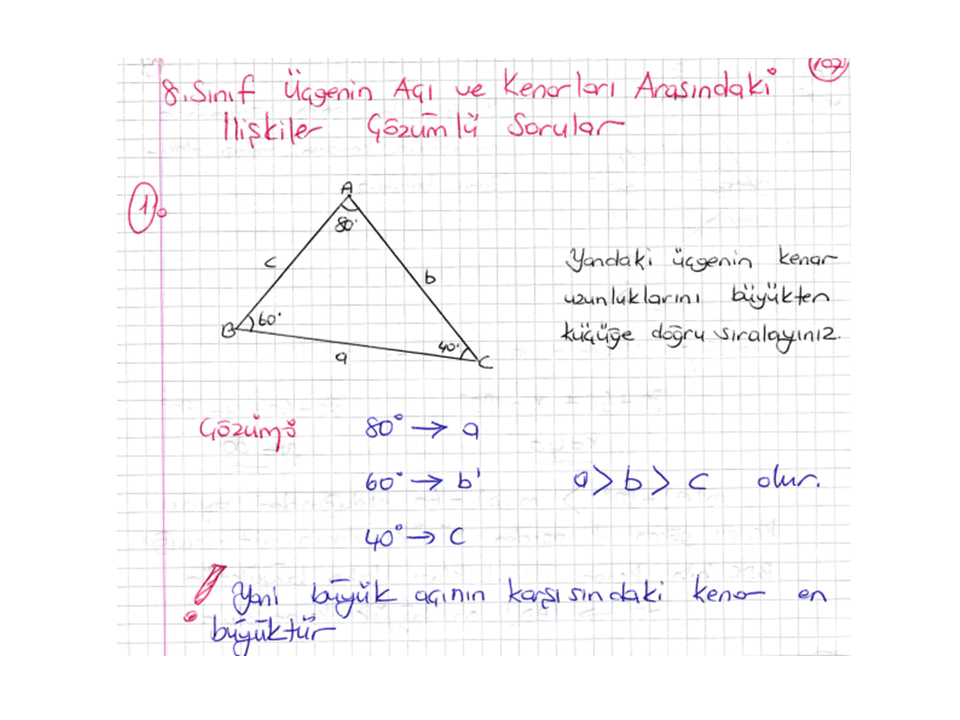 107
8.Sınıf Üçgenin Açı ve Kenarları Arasındaki
İlişkiler Çözümlü Sorular
1.
A
80°
c
b
B
60°
40°
C
a
Yandaki üçgenin kenar
uzunluklarını büyükten
küçüğe doğru sıralayınız.
Çözüm:
80° → a
60° → b'
a > b > c olur.
40° → c
! Yani büyük açının karşısındaki kenar en
büyüktür